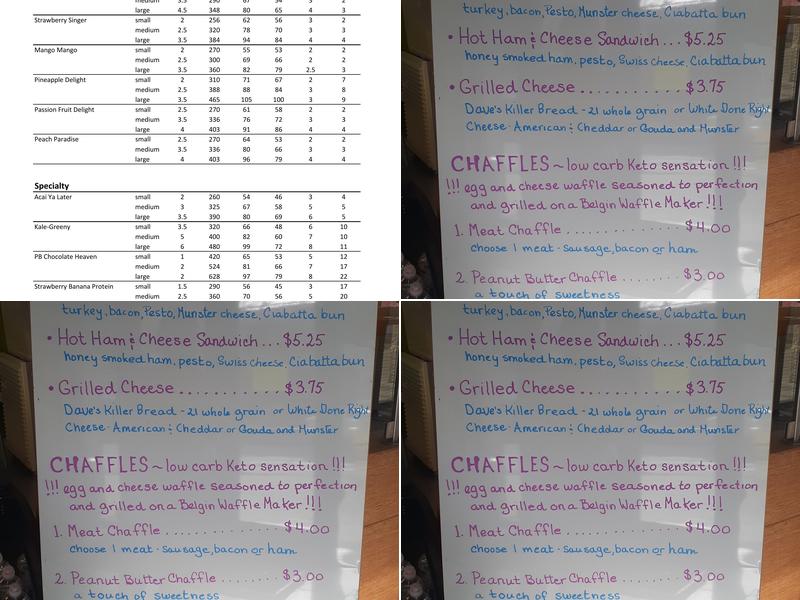 medium 3.5 290 67 54 3 2
large 4.5 348 80 4 3
Strawberry Singer small 2 256 62 56 3 2
medium 2.5 320 78 70 3 3
large 3.5 384 94 84 4 4
Mango Mango small 2 270 55 53 2 2
medium 2.5 300 69 66 2 2
large 3.5 360 82 79 2.5 3
Pineapple Delight small 2 310 71 67 2 7
medium 2.5 388 88 84 3 8
large 3.5 465 105 100 3 9
Passion Fruit Delight small 2.5 270 61 58 2 2
medium 3.5 336 76 72 3 3
large 4 403 91 86 4 4
Peach Paradise small 2.5 270 64 53 2 2
medium 3.5 336 80 66 3 3
large 4 403 96 79 4 4
Specialty
Acai Ya Later small 2 260 54 46 3 4
medium 3 325 67 58 5 5
large 3.5 390 80 69 6 5
Kale-Greeny small 3.5 320 66 48 6 10
medium 5 400 82 60 7 10
large 6 480 99 72 8 11
PB Chocolate Heaven small 1 420 65 53 5 12
medium 2 524 81 66 7 17
large 2 628 97 79 8 22
Strawberry Banana Protein small 1.5 290 56 45 3 17
medium 2.5 360 70 56 5 20
turkey, bacon, Pesto, Munster cheese, Ciabatta bun
• Hot Ham & Cheese Sandwich ... $5.25
honey smoked ham, pesto, Swiss cheese, Ciabatta bun
• Grilled Cheese .......... $3.75
Dave's Killer Bread - 21 whole grain or White Done Right
Cheese - American & Cheddar or Gouda and Munster
CHAFFLES ~ low carb Keto sensation !!!
!!! egg and cheese waffle seasoned to perfection
and grilled on a Belgin Waffle Maker !!!
1. Meat Chaffle .......... $4.00
choose 1 meat - sausage, bacon or ham
2. Peanut Butter Chaffle ....... $3.00
a touch of sweetness
turkey, bacon, Pesto, Munster cheese, Ciabatta bun
• Hot Ham & Cheese Sandwich ... $5.25
honey smoked ham, pesto, Swiss cheese, Ciabatta bun
• Grilled Cheese .......... $3.75
Dave's Killer Bread - 21 whole grain or White Done Right
Cheese - American & Cheddar or Gouda and Munster
CHAFFLES ~ low carb Keto sensation !!!
!!! egg and cheese waffle seasoned to perfection
and grilled on a Belgin Waffle Maker !!!
1. Meat Chaffle .......... $4.00
choose 1 meat - sausage, bacon or ham
2. Peanut Butter Chaffle ....... $3.00
a touch of sweetness
turkey, bacon, Pesto, Munster cheese, Ciabatta bun
• Hot Ham & Cheese Sandwich ... $5.25
honey smoked ham, pesto, Swiss cheese, Ciabatta bun
• Grilled Cheese .......... $3.75
Dave's Killer Bread - 21 whole grain or White Done Right
Cheese - American & Cheddar or Gouda and Munster
CHAFFLES ~ low carb Keto sensation !!!
!!! egg and cheese waffle seasoned to perfection
and grilled on a Belgin Waffle Maker !!!
1. Meat Chaffle .......... $4.00
choose 1 meat - sausage, bacon or ham
2. Peanut Butter Chaffle ....... $3.00
a touch of sweetness